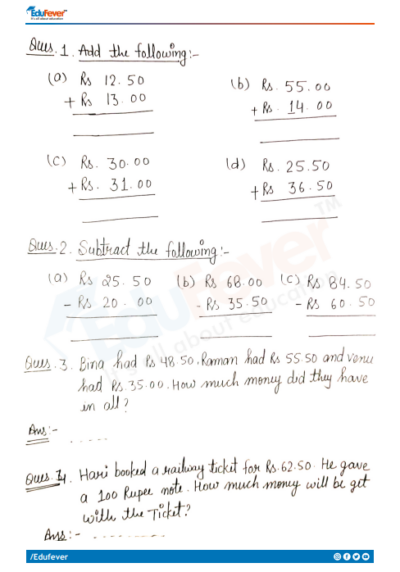 EduFever
It's all about education
Ques. 1. Add the following:-
(a) Rs 12.50
+ Rs 13.00
(b) Rs. 55.00
+ Rs. 14.00
(c) Rs. 30.00
+ Rs. 31.00
(d) Rs. 25.50
+ Rs 36.50
Ques. 2. Subtract the following:-
(a) Rs 25.50
- Rs 20.00
(b) Rs 68.00
- Rs 35.50
(c) Rs 84.50
- Rs 60.50
Ques. 3. Bina had Rs 48.50. Raman had Rs 55.50 and venu
had Rs 35.00. How much money did they have
in all?
Ans:- .....
Ques. 4. Hari booked a railway ticket for Rs. 62.50. He gave
a 100 Rupee note. How much money will be get
with the Ticket?
Ans:- .........
/Edufever
EduFever™
It's all about education